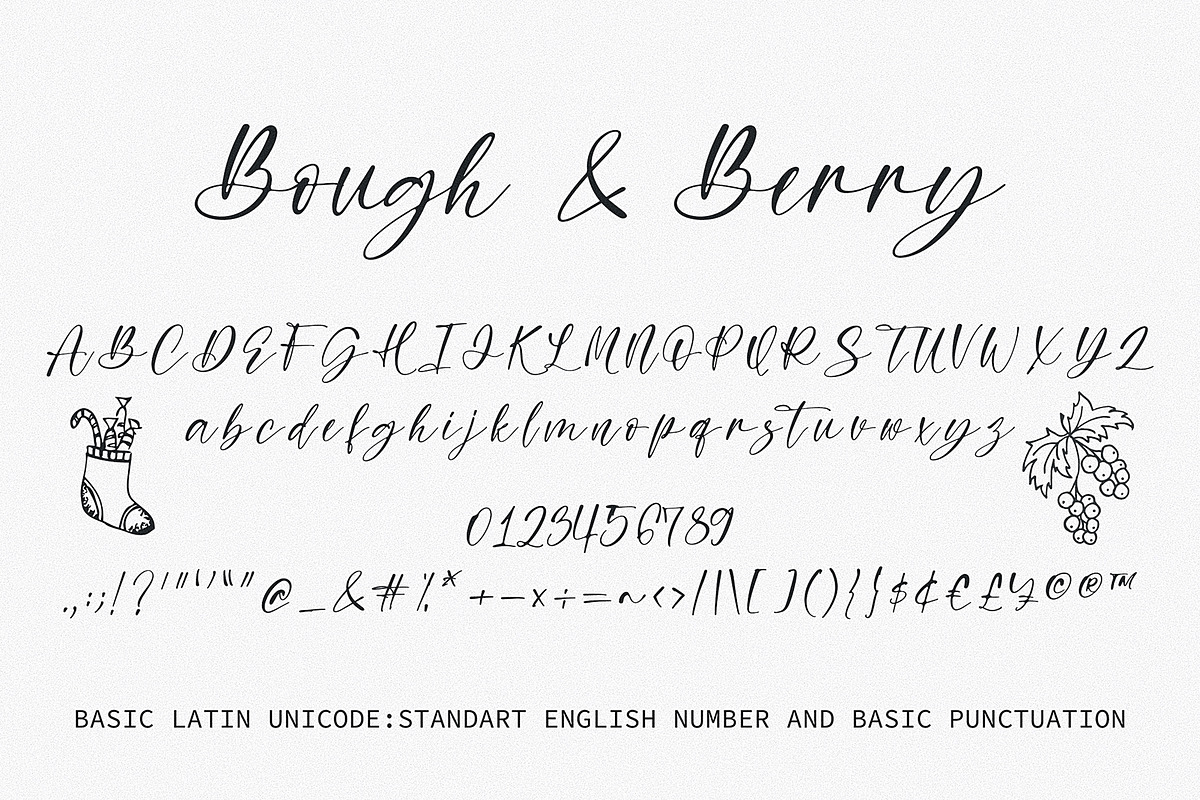 Bough & Berry
ABCDEFGHIJKLMNOPQRSTUVWXYZ
abcdefghijklmnopqrstuvwxyz
0123456789
.,:;!?'"‘’“”@_&#%*+−×÷=~<>/|\[](){}$¢€£¥©®™
BASIC LATIN UNICODE:STANDART ENGLISH NUMBER AND BASIC PUNCTUATION